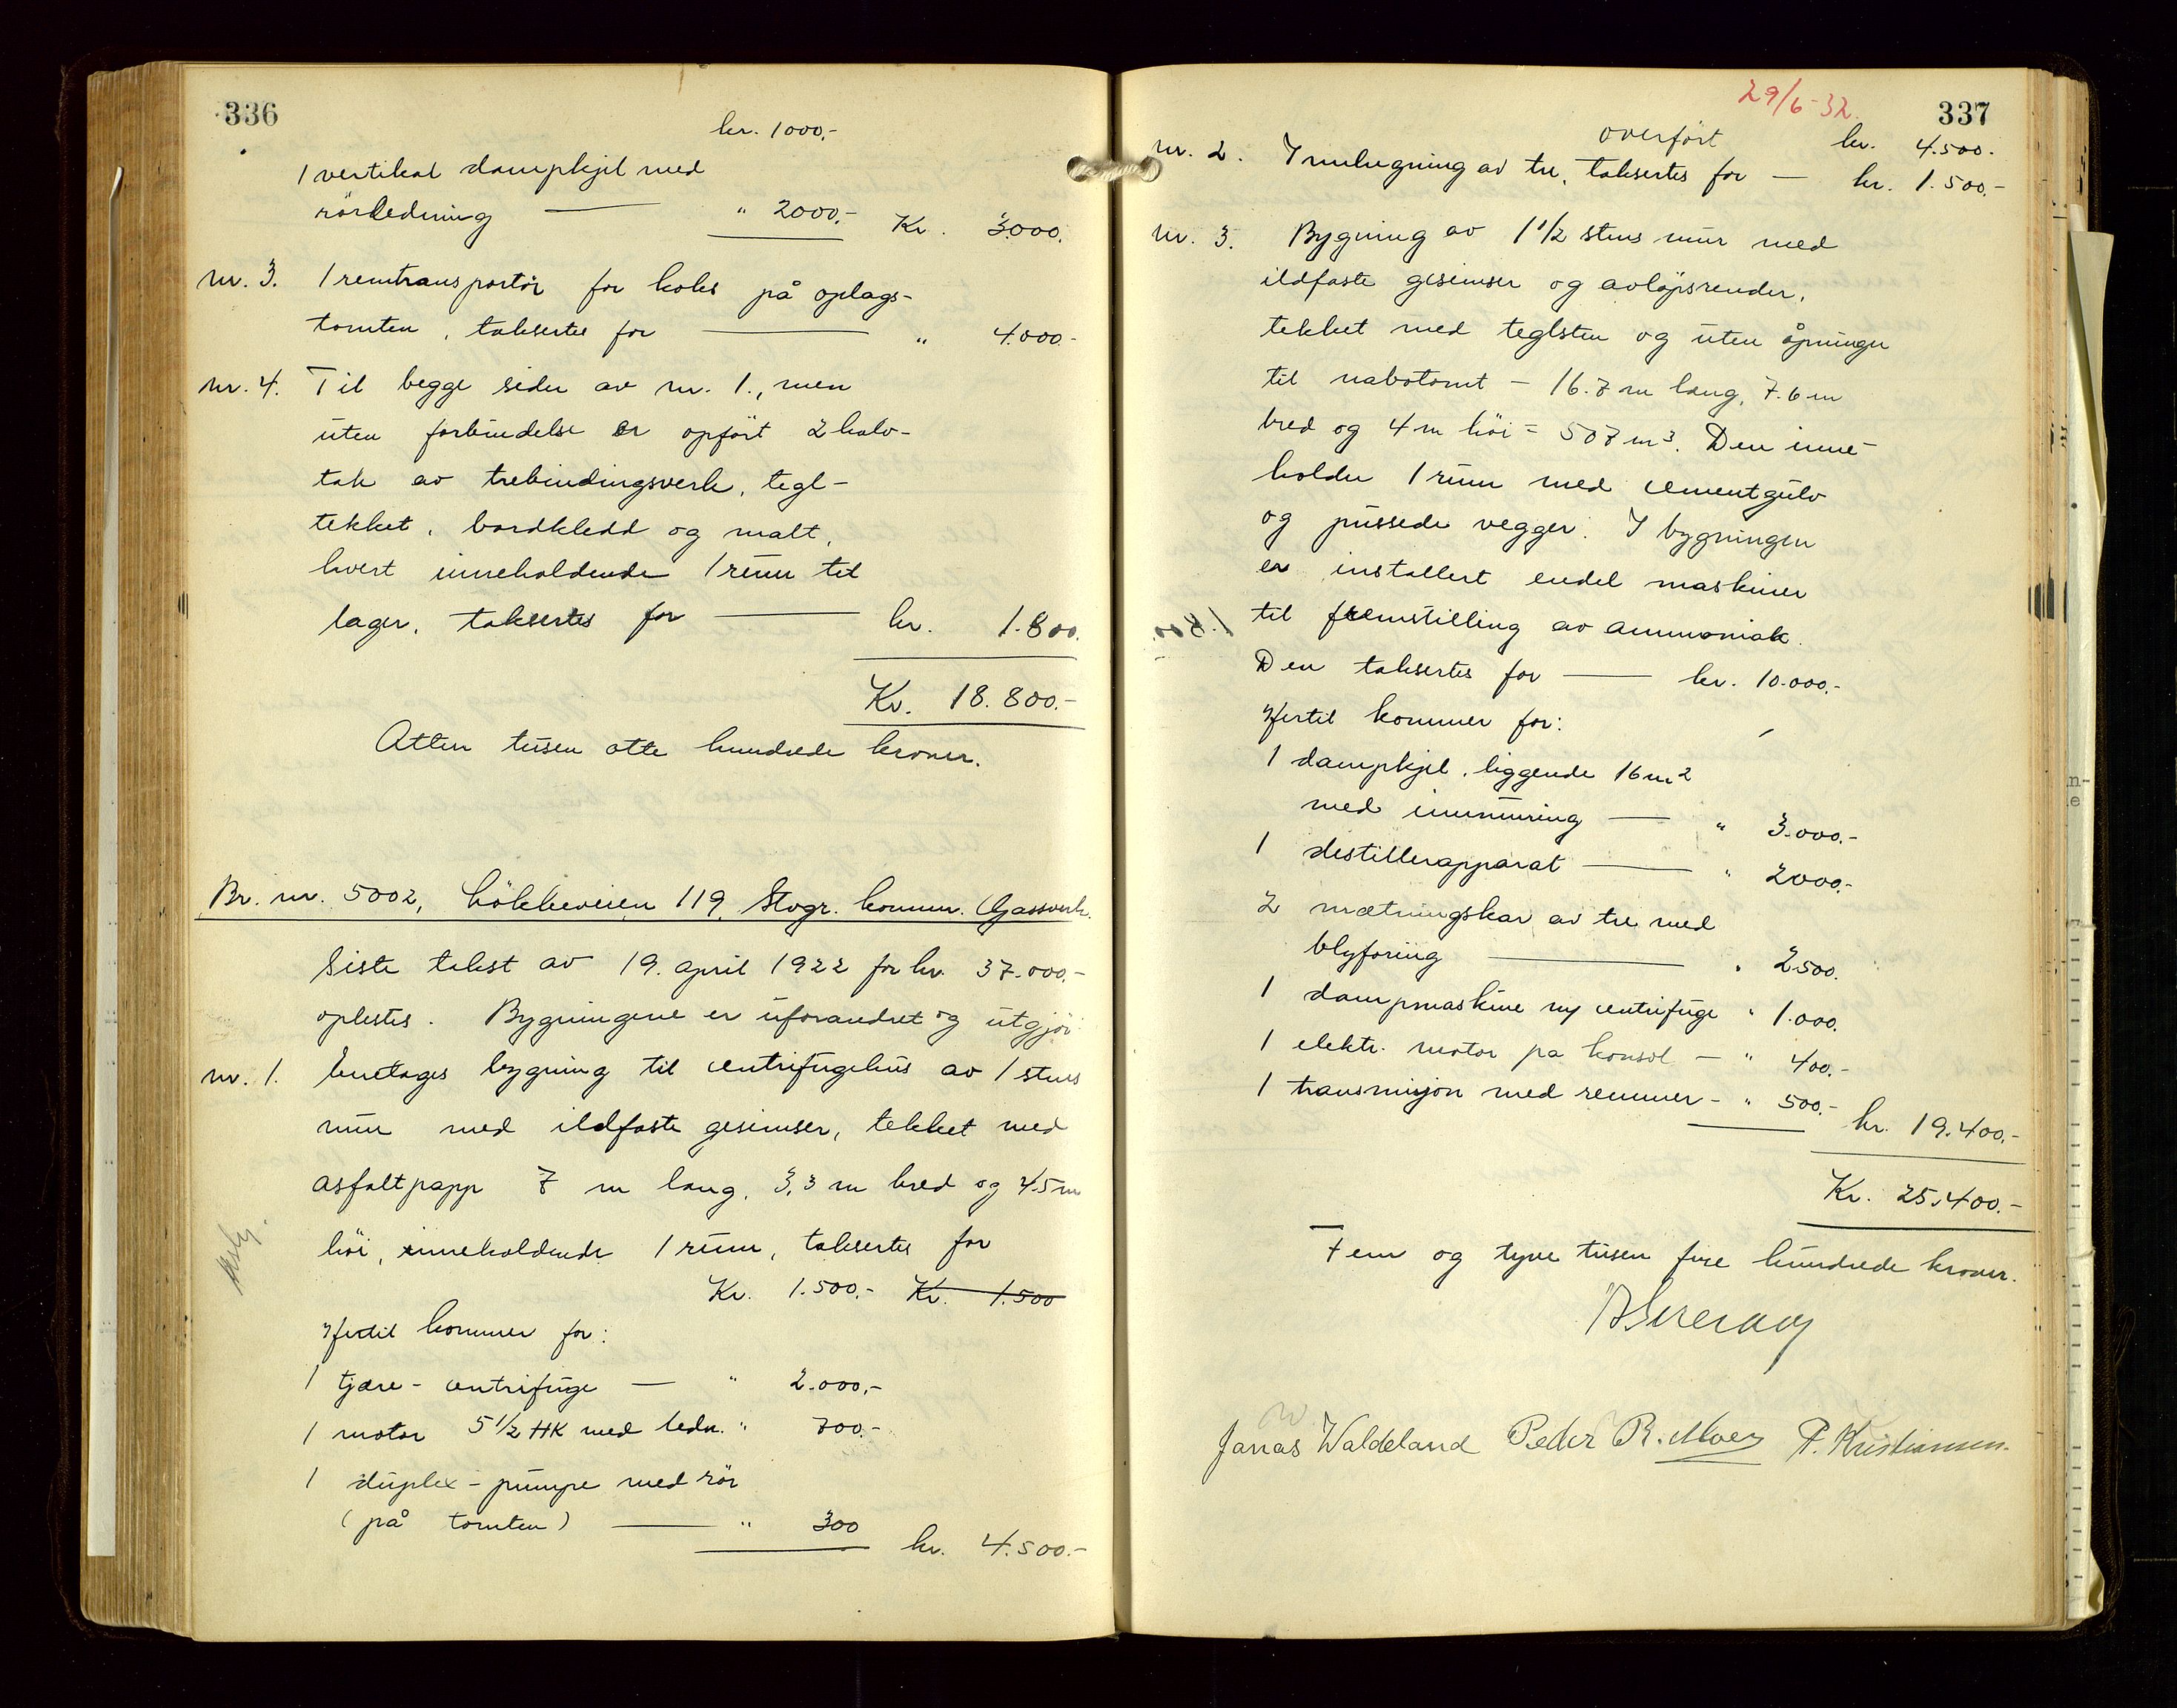 336
kr. 1000,-
1 vertikal dampkjel med
rörledning — " 2000,- Kr. 3000.
nr. 3. 1 remtransportör for koks på oplags-
tomten, taksertes for — " 4.000.-
nr. 4. Til begge sider av nr. 1., men
uten forbindelse er opfört 2 halv-
tak av trebindingsverk, tegl-
tekket, bordkledd og malt,
hvert inneholdende 1 rum til
lager, taksertes for — kr. 1.800.
Kr. 18.800.-
Atten tusen otte hundrede kroner.
Br. nr. 5002, Lökkeveien 119, Stvgr. komm. Gassverk.
Siste takst av 19. april 1922 for kr. 37.000,-
oplestes. Bygningene er uforandret og utgjör
nr. 1. enetages bygning til centrifugehus av 1 stens
mur med ildfaste gesimser, tekket med
asfaltpapp 7 m lang, 3,3 m bred og 4.5 m
höi, inneholdende 1 rum, taksertes for
Kr. 1.500.- Kr. 1.500
Hertil kommer for:
1 tjære-centrifuge — " 2.000,-
1 motor 5 1/2 HK med ledn. " 700.-
1 duplex-pumpe med rör
(på tomten) — " 300 kr. 4.500.-
29/6-32.
337
overfört kr. 4.500.-
nr. 2. Innbygning av tre, taksertes for — kr. 1.500,-
nr. 3. Bygning av 1 1/2 stens mur med
ildfaste gesimser og avlöpsrender,
tekket med teglsten og uten åpninger
til nabotomt - 16.7 m lang, 7.6 m
bred og 4 m höi = 507 m3. Den inne-
holder 1 rum med cementgulv
og pussede vegger. I bygningen
er installert endel maskiner
til fremstilling av ammoniak.
Den taksertes for — kr. 10.000,-
Hertil kommer for:
1 dampkjel, liggende 16 m2
med innmuring — " 3.000.-
1 destillerapparat — " 2000.-
2 mætningskar av tre med
blyforing — " 2500.
1 dampmaskine m/ centrifuge " 1.000.
1 elektr. motor på konsol — " 400.-
1 transmisjon med remmer - " 500.- kr. 19.400,-
Kr. 25.400.-
Fem og tyve tusen fire hundrede kroner.
Janas Waldeland Peder R. Moen P. Kristiansen.